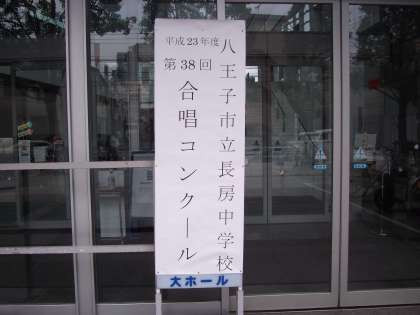 八王子市立長房中学校
平成23年度
第38回
合唱コンクール
大ホール